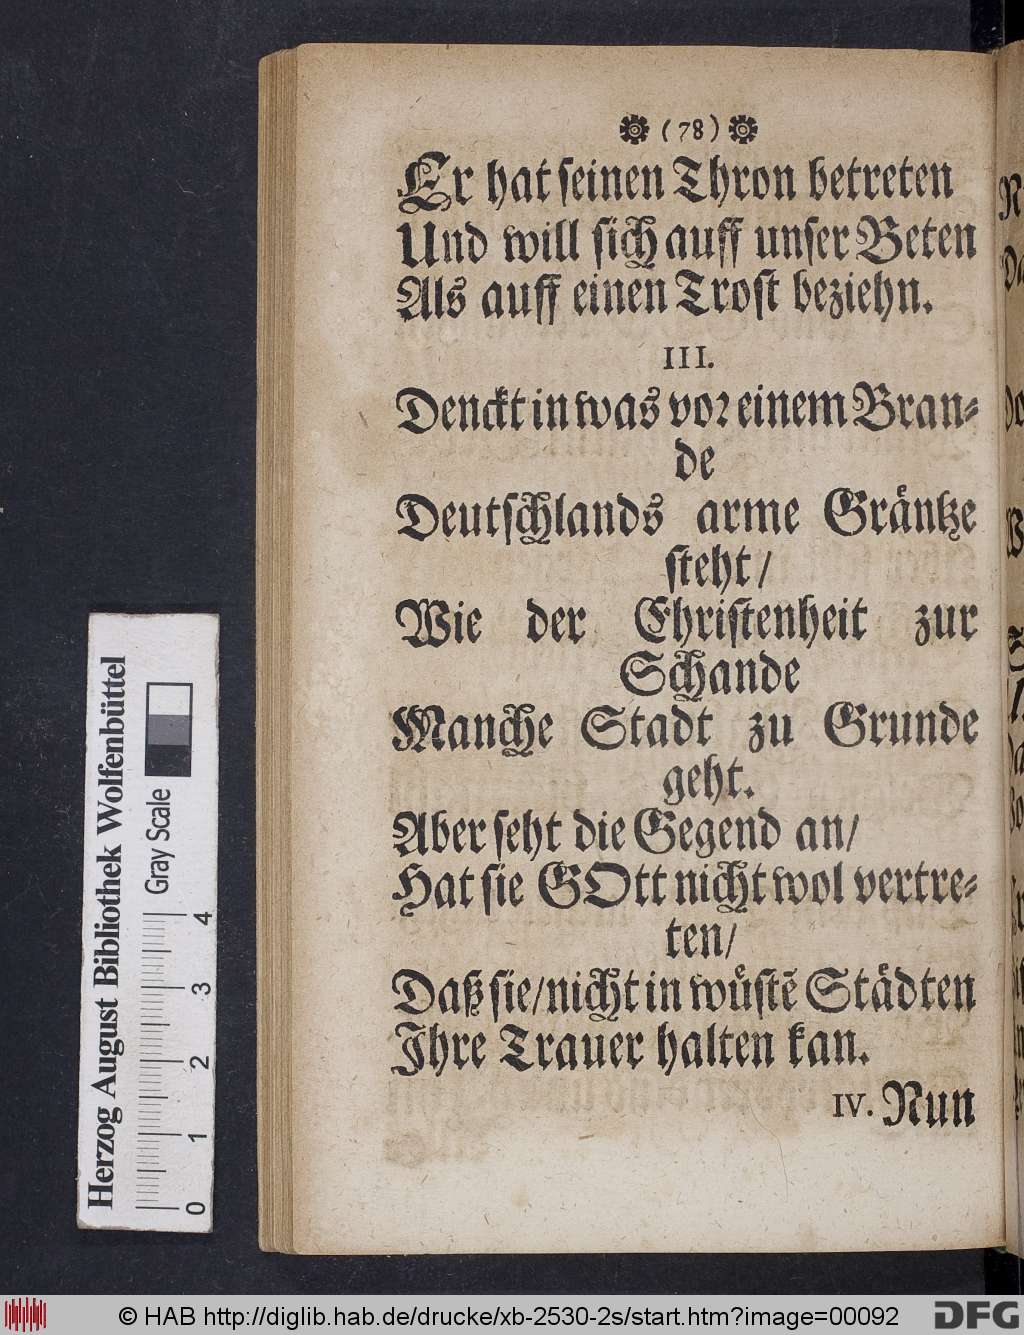 (78)
Er hat seinen Thron betreten
Und will sich auff unser Beten
Als auff einen Trost beziehn.
III.
Denckt in was vor einem Bran-
de
Deutschlands arme Gräntze
steht/
Wie der Christenheit zur
Schande
Manche Stadt zu Grunde
geht.
Aber seht die Gegend an/
Hat sie GOtt nicht wol vertre-
ten/
Daß sie/nicht in wüstē Städten
Ihre Trauer halten kan.
IV. Nun
Herzog August Bibliothek Wolfenbüttel
Gray Scale
0 1 2 3 4
© HAB http://diglib.hab.de/drucke/xb-2530-2s/start.htm?image=00092
DFG